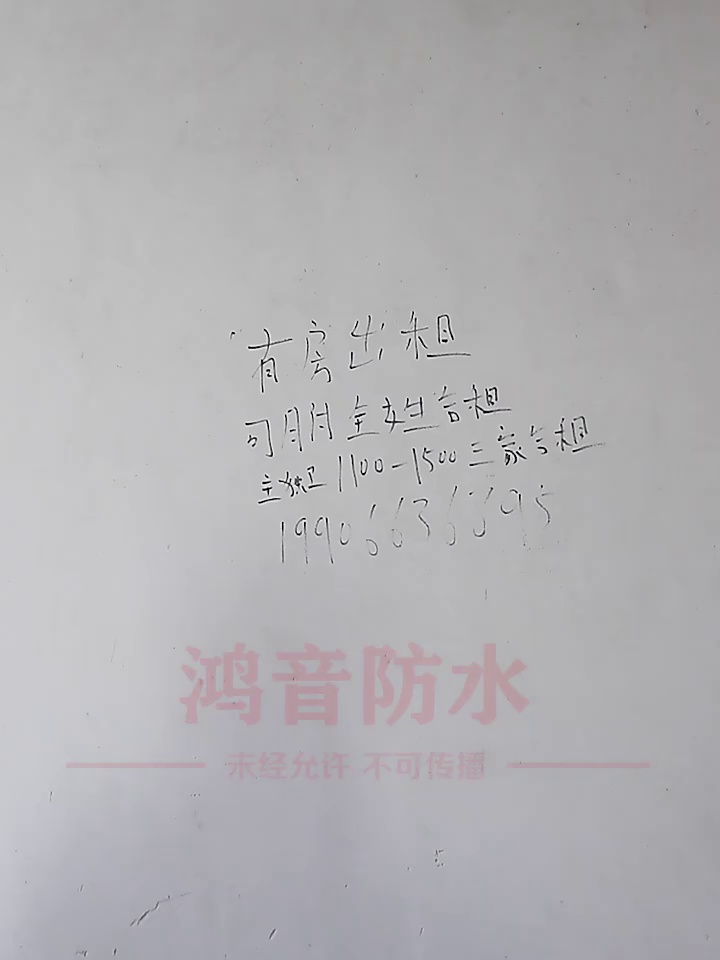 有房出租
可月付全女生合租
主独卫1100-1500三家合租
19906636695
鸿音防水
未经允许 不可传播